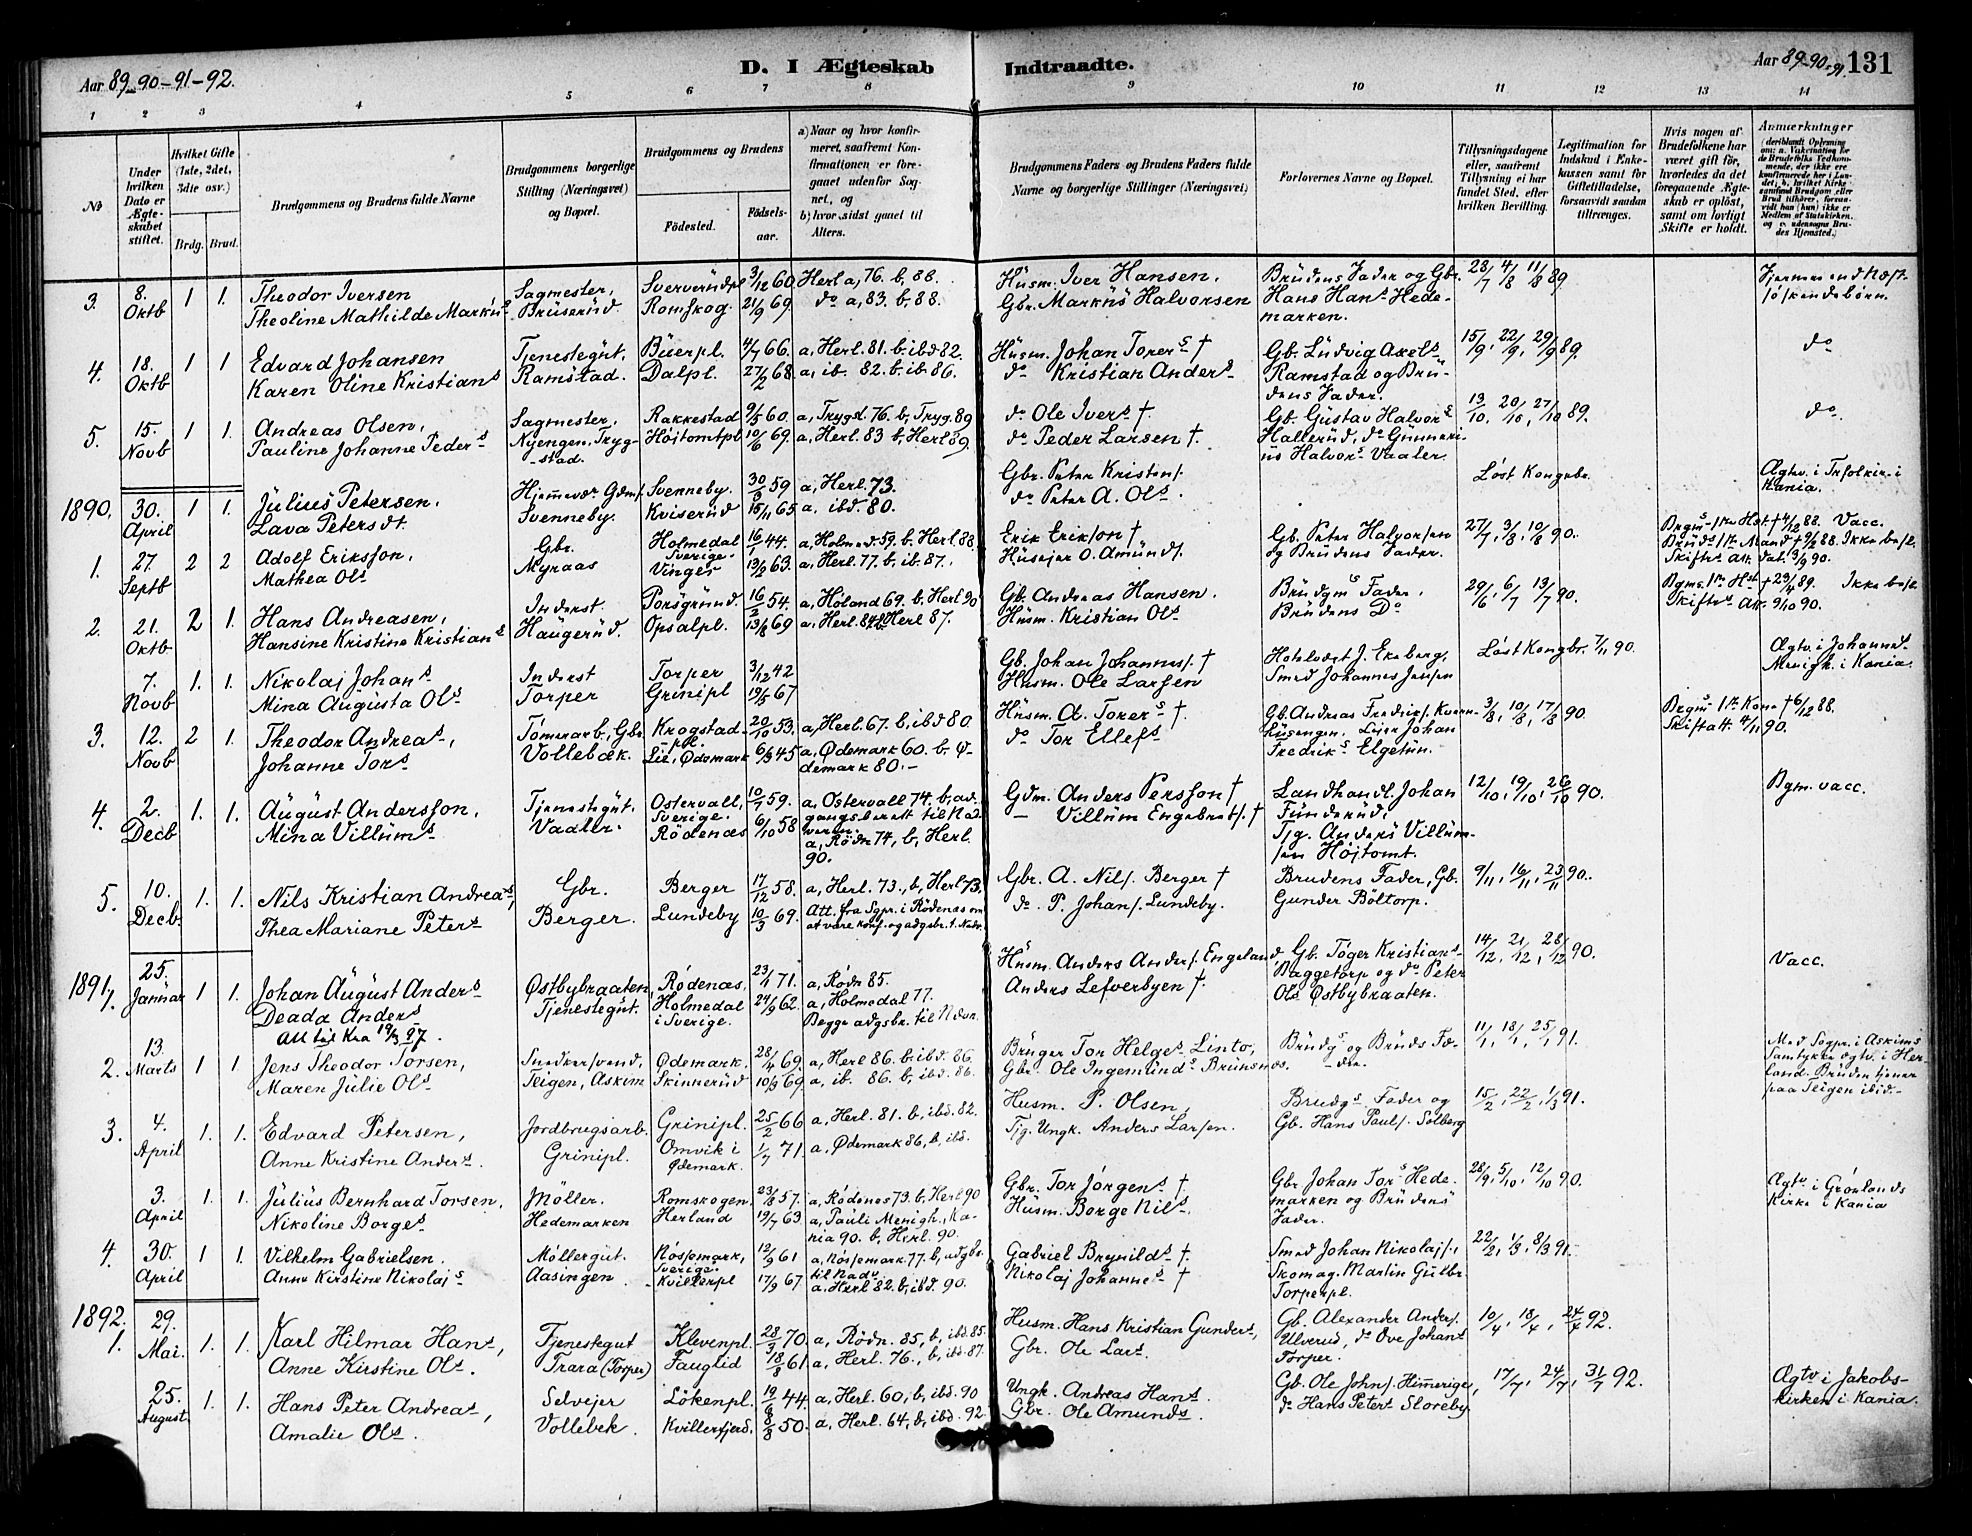 Aar 89-90-91-92.
D. I Ægteskab Indtraadte.
Aar 89-90-91. 131
1 2 3 4 5 6 7 8 9 10 11 12 13 14
No
Under hvilken Dato er Ægteskabet stiftet.
Hvilket Gifte (1ste, 2det, 3die osv.)
Brdg. Brud.
Brudgommens og Brudens fulde Navne
Brudgommens borgerlige Stilling (Næringsvei) og Bopæl.
Brudgommens og Brudens
Fødested. Fødselsaar.
a) Naar og hvor konfirmeret, saafremt Konfirmationen er foregaaet udenfor Sognet, og
b) hvor sidst gaaet til Alters.
Brudgommens Faders og Brudens Faders fulde Navne og borgerlige Stillinger (Næringsvei)
Forlovernes Navne og Bopæl.
Tillysningsdagene eller, saafremt Tillysning ei har fundet Sted, efter hvilken Bevilling.
Legitimation for Indskud i Enkekassen samt for Giftetilladelse, forsaavidt saadan tiltrænges.
Hvis nogen af Brudefolkene har været gift før, hvorledes da det foregaaende Ægteskab er opløst, samt om lovligt Skifte er holdt.
Anmærkninger
3. 8. Oktb 1 1. Theodor Iversen
Theoline Mathilde Marküs
Sagmester, Brüserüd.
Sververüdpl 3/12 60. Herl a, 76. b, 88.
Romskog. 21/9 69. do a, 83. b, 88.
Hüsm. Iver Hansen.
Gbr. Marküs Halvorsen
Brüdens Fader og Gbr. Hans Hans Hedemarken.
28/7 4/8 11/8 89
Fjermere end Næstsøskendebørn.
4. 18. Oktb 1 1 Edvard Johansen
Karen Oline Kristians
Tjenestegüt, Ramstad.
Büerpl. 4/7 66. a, Herl. 81. b. ibd 82.
Dalpl. 27/2 68. a, ib. 82. b. ib 86.
Hüsm. Johan Torers †
do Kristian Anders
Gb. Lüdvig Axels Ramstad og Brüdens Fader.
15/9, 22/9, 29/9 89.
do
5. 15. Novb 1 1. Andreas Olsen,
Pauline Johanne Peders
Sagmester, Nyengen, Trygstad.
Rakkestad 9/5 60. a, Trygst. 76. b, Tryg. 89
Højtomtpl 10/6 69. a, Herl. 83 b, Herl 89.
do Ole Ivers †
do Peder Larsen †.
Gb. Güstav Halvors Hallerüd, do Günnerius Halvors Vaaler
13/10, 20/10, 27/10 89.
do.
1890. 30. April 1 1. Jülius Petersen,
Lava Petersdt.
Svenneby.
Svenneby. 30/3 59 a, Herl. 73.
Kviserüd 15/11 65 a. ibd. 80.
Gbr. Peter Kristens.
do Peter A. Ols.
Løst Kongebr.
Ægtv. i Trefolkir. i Kania.
1. 27. Septb 2 2 Adolf Eriksson,
Mathea Ols
Gbr. Myraas
Holmedal Sverige. 16/1 44. a, Holmed. 59. b. Herl. 88.
Vinger 13/2 63. a, Herl. 77. b, ib. 87.
Erik Erikson †
Hüsejer O. Amünds.
Gb. Peter Halvorsen og Brüdens Fader.
27/7, 3/8, 10/8 90.
Brgms 1ste Hst † 4/12 88. Vacc.
Brüds 1ste Mand † 9/2 88. Ikke besl.
Skiftes Att. dat. 3/9 90.
2. 21. Oktb 2 1. Hans Andreasen,
Hansine Kristine Kristians
Inderst. Haügerüd.
Porsgründ. 16/2 54. a, Høland 69. b. Herl 90
Opsalpl. 13/8 69 a, Herl. 84 b Herl 87.
Gb. Andreas Hansen.
Hüsm. Kristian Ols
Brüdgms Fader,
Brüdens Do
29/6, 6/7, 13/7 90.
Bgms. 1ste Hst † 23/4 89. Ikke besl
Skiftes Att. 9/10 90.
7. Novb 1. 1. Nikolaj Johans
Mina Augusta Ols
Inderst Torper
Torper 3/12 42
Grinipl 19/5 67
Gb. Johan Johannes. †
Husm. Ole Larsen
Hotelvært J. Ekeberg,
Smed Johannes Jensen
Løst Kongbr. 7/11 90.
Ægtv. i Johannes Menigh. i Kania.
3. 12. Novb 2 1. Theodor Andreas,
Johanne Tors
Tømerarb, Gbr. Vollebæk.
Krogstadpl. 20/10 53. a, Herl. 67. b, ibd 80
Lie, Ødemark 6/3 45 a, Ødemark 60. b. Ødemark 80.
Hüsm. A. Torers †.
do Tor Ellefs
Gb. Andreas Fredriks. Kværnhüsengen. Lejer Johan Fredriks Elgetün.
3/8, 10/8, 17/8 90.
Brgms 1ste Kone † 6/12 88.
Skifta tt. 4/11 90.
4. 2. Decb 1. 1. Aügüst Andersson,
Mina Villüms
Tjenestegüt. Vaaler.
Ostervall, Sverige. 10/1 59. a, Ostervall, 74. b, adgangsberett til Nadveren.
Rödenæs 6/10 58 a, Rødn 74, b, Herl. 90.
Gdm. Anders Persson †
— Villüm Engebrets. †
Landhandl. Johan Fünderüd,
Tjg. Anders Villümsen Højtomt.
12/10, 19/10, 26/10 90.
Bgm. vacc.
5. 10. Decb. 1. 1. Nils Kristian Andreas,
Thea Mariane Peters
Gbr. Berger.
Berger 17/12 58. a, Herl. 73., b, Herl 73.
Lundeby 10/3 69. Att. fra Sgpr. i Rødenæs om at være konf. og adgsbr. t. Nadv.
Gbr. A. Nils. Berger †
do. P. Johans. Lundeby.
Brudens Fader, Gb. Gunder Böltorp.
9/11, 16/11, 23/11 90.
1891. 1. 25. Janüar 1 1. Johan Aügüst Anders
Deada Anders
Att til Kra 19/3 97.
Østbybraaten, Tjenestegüt.
Rødenæs, 23/1 71. a, Rødn 85.
Holmedal i Sverige. 24/9 62. a, Holmedal 77. Begge adgsbr. til Nadv.
Hüsm. Anders Anders. Engeland
Anders Lefverbyen †.
Gb. Tøger Kristians Baggetorp og do Peter Ols Østbybraaten.
14/12, 21/12, 28/12 90.
Vacc.
2. 13. Marts 1 1. Jens Theodor Torsen,
Maren Jülie Ols
Snedkersvend, Teigen, Askim
Ødemark, 28/4 69. a, Herl 86. b. ibd. 86.
Skinnerüd 10/3 69. a, ib. 86. b, ibd. 86.
Brüger Tor Helges Linto,
Gbr. Ole Ingemünds Brünsnæs.
Brüdgs og Brüds Fædre.
11/1, 18/1, 25/1 91.
Med Sogpr. i Askims Samtykke ægtv. i Herland. Brüden tjener paa Teigen ibid.
3. 4. April 1. 1. Edvard Petersen,
Anne Kristine Anders.
Jordbrugsarb. Grinipl.
Grinipl. 25/2 66 a, Herl. 81. b, ibd. 82.
Omvik i Ødemark. 1/7 71. a, Ødemark 86, b, ibd.
Husm. P. Olsen,
Tjg. Ungk. Anders Larsen.
Brudgs Fader og Gb. Hans Pauls. Solberg
15/2, 22/2, 1/3 91.
3. April 1. 1. Jülius Bernhard Torsen,
Nikoline Borges
Möller. Hedemarken
Romskogen 23/8 57. a, Rødenæs 73. b, Herl 90
Herland 19/7 63. a, Pauli Menigh., Kania 90. b, Herl. 90.
Gbr. Tor Jörgens †
Hüsm. Borge Nils.
Gbr Johan Tors Hedemarken og Brüdens Fader.
28/9, 5/10, 12/10 90.
Ægtv. i Grønlands Kirke i Kania
4. 30. April 1 1. Vilhelm Gabrielsen.
Anne Kirstine Nikolajs
Møllergüt. Aasingen
Nössemark, Sverige. 12/9 61 a, Nössemark 77. b, adgbr. til Nadv.
Kvillerpl 17/9 67. a, Herl 82. b, ibd. 90.
Gabriel Brynilds †.
Nikolaj Johannes †
Smed Johan Nikolajs.,
Skomag. Martin Gülbr. Torperpl.
22/2, 1/3, 8/3 91.
1892. 1. 29. Mai. 1. 1. Karl Hilmar Hans,
Anne Kirstine Ols.
Tjenestegut Trara (Torper)
Klevenpl. 28/3 70. a, Rødn. 85, b, ibd. 85.
Fauglid 18/8 61. a, Herl. 76., b, ibd. 87.
Husm. Hans Kristian Gunders,
Gbr. Ole Lars.
Gb. Alexander Anders. Ulverud, do Ove Johans Torper.
10/4, 18/4, 24/4 92.
25. August 1. 1. Hans Peter Andreas,
Amalie Ols.
Selvejer Vollebek.
Lökenpl. 19/6 44. a, Herl. 60, b, ibd. 90
Kvillersjerd. 8/8 50. a, Herl. 64, b, ibd. 92.
Ungk. Andreas Hans.
Gbr. Ole Amunds.
Gb. Ole Johns. Himerige,
do Hans Peters Sloreby.
17/7, 24/7, 31/7 92.
Ægtv i Jakobskirken i Kania.